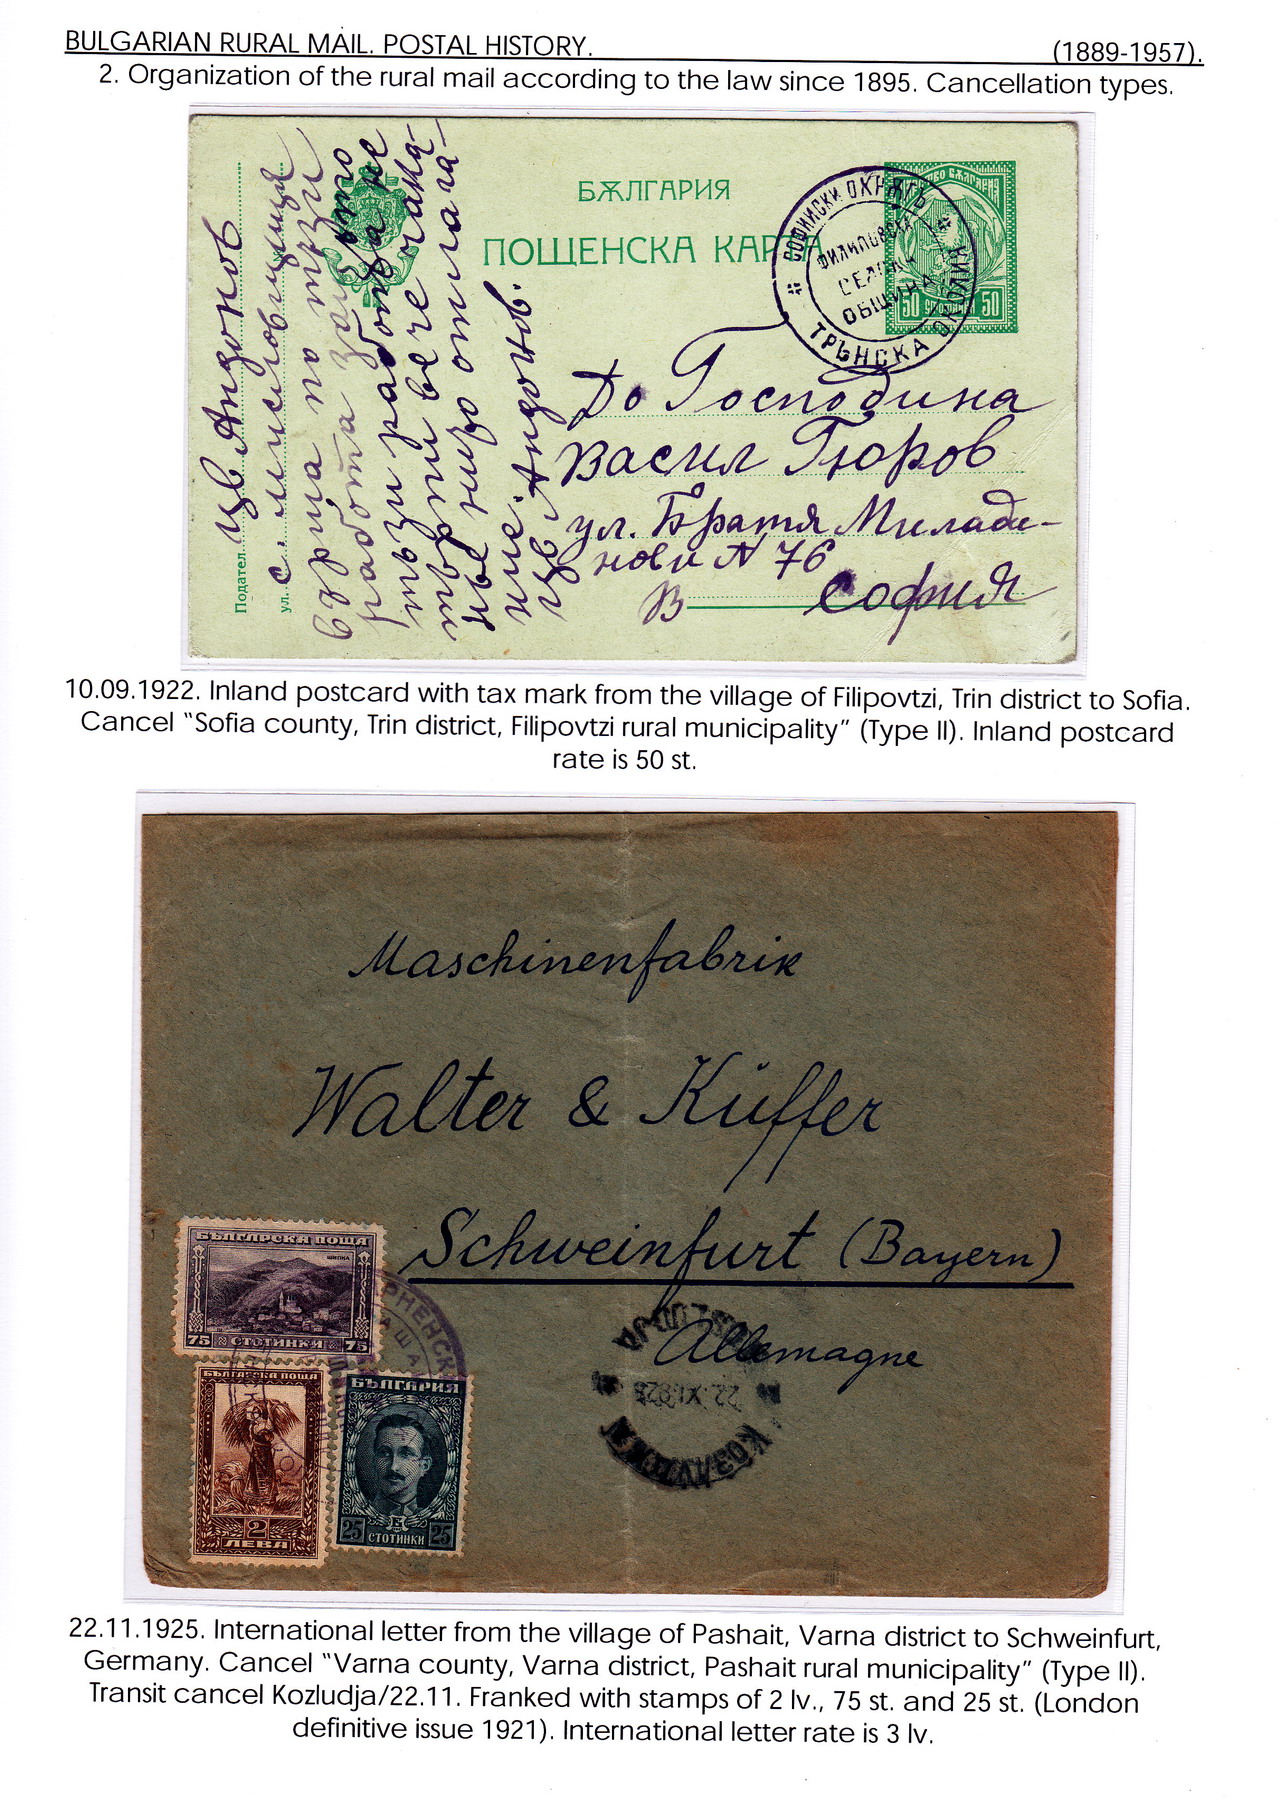 BULGARIAN RURAL MAIL. POSTAL HISTORY. (1889-1957).
2. Organization of the rural mail according to the law since 1895. Cancellation types.
БѪЛГАРИЯ
ПОЩЕНСКА КАРТА
СОФИЙСКИ ОКРѪГЪ
ФИЛИПОВСКА
СЕЛСКА
ОБЩИНА
ТРЪНСКА ОКОЛИЯ
50 СТОТИНКИ 50
До Господина
Васил Гюров
ул. Братя Милади-
нови N 76
В София
Подател Цв Андонов
ул. с.
работа
Цв Андонов.
10.09.1922. Inland postcard with tax mark from the village of Filipovtzi, Trin district to Sofia.
Cancel “Sofia county, Trin district, Filipovtzi rural municipality” (Type II). Inland postcard
rate is 50 st.
Maschinenfabrik
Walter & Küffer
Schweinfurt (Bayern)
Allemagne
БЪЛГАРСКА ПОЩА
ШИПКА
75 СТОТИНКИ 75
БЪЛГАРСКА ПОЩА
2
ЛЕВА
БЪЛГАРИЯ
25 СТОТИНКИ 25
22.XI.925
КОЗЛУДЖА
22.11.1925. International letter from the village of Pashait, Varna district to Schweinfurt,
Germany. Cancel “Varna county, Varna district, Pashait rural municipality” (Type II).
Transit cancel Kozludja/22.11. Franked with stamps of 2 lv., 75 st. and 25 st. (London
definitive issue 1921). International letter rate is 3 lv.